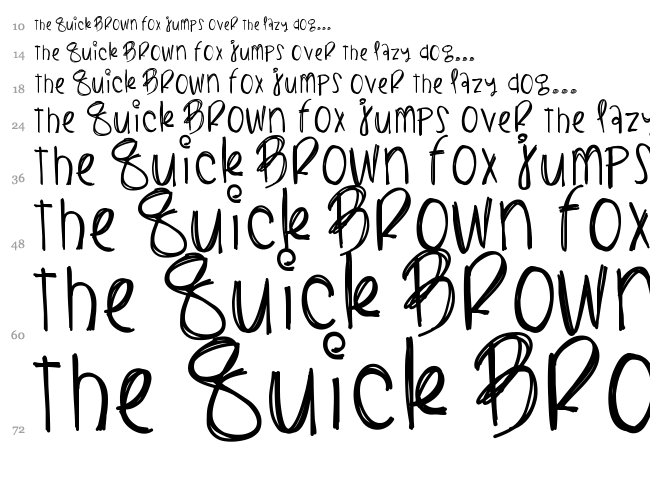 10 the Quick BROWN fox jumps oveR the lazy dog...
14 the Quick BROWN fox jumps oveR the lazy dog...
18 the Quick BROWN fox jumps oveR the lazy dog...
24 the Quick BROWN fox jumps oveR the lazy
36 the Quick BROWN fox jumps
48 the Quick BROWN fox
60 the Quick BROWN
72 the Quick BRO